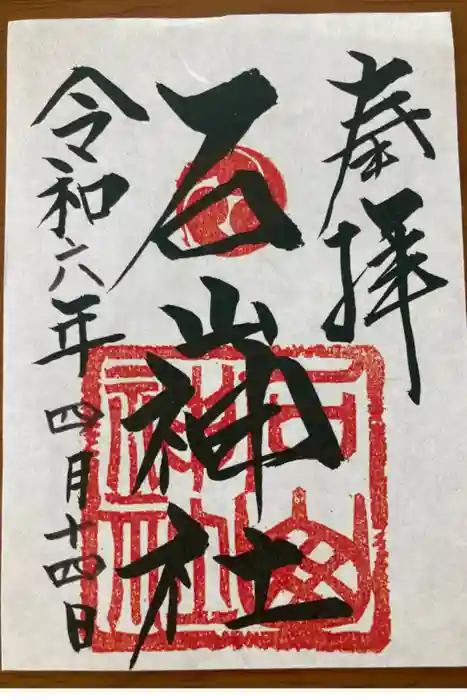 奉拝
石山神社
令和六年四月十四日